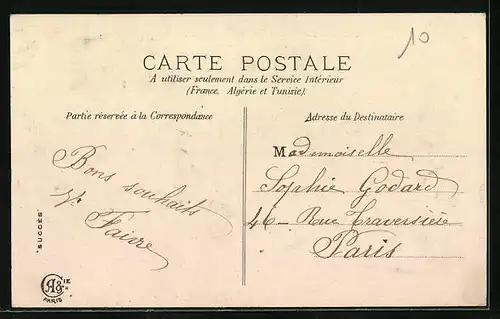 10
CARTE POSTALE
A utiliser seulement dans le Service Intérieur
(France, Algérie et Tunisie).
Partie réservée à la Correspondance
Adresse du Destinataire
Bons souhaits
V. Faivre
Mademoiselle
Sophie Godard
46 - Rue Traversière
Paris
"SUCCÈS"
A & CIE
PARIS